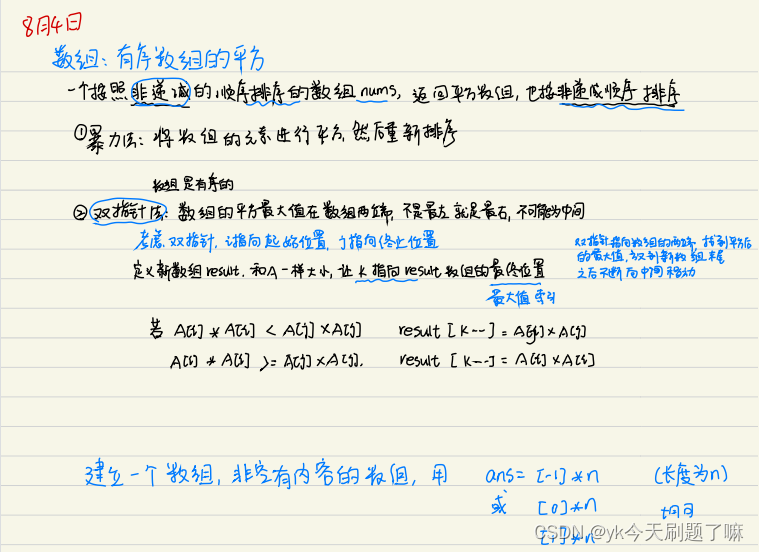 8月4日
数组：有序数组的平方
一个按照非递减的顺序排序的数组nums，返回平方数组，也按非递减顺序排序
①暴力法：将数组的元素进行平方，然后重新排序
数组是有序的
②双指针法：数组的平方最大值在数组两端，不是最左就是最右，不可能为中间
考虑双指针，i指向起始位置，j指向终止位置
双指针指向数组的两端，找到平方后
的最大值，放到新数组尾
之后不断向中间移动
定义新数组result，和A一样大小，让K指向result数组的最终位置
最大值索引
若 A[i] * A[i] < A[j] × A[j] result [K--] = A[j] × A[j]
A[i] * A[i] >= A[j] × A[j]. result [K--] = A[i] × A[i]
建立一个数组，非空有内容的数组，用 ans = [-1] * n (长度为n)
或 [0] * n 均可
[1] * n
CSDN @yk今天刷题了嘛